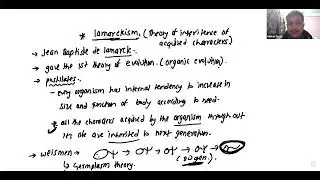 * lamarckism. (theory of inheritence of
acquied characters)
→ Jean Baptiste de lamarck.
→ gave the 1st theory of evolution. (organic evolution).
→ pustulates.
- Every organism has internal tendency to increase in
size and function of body according to need.
* all the characters acquired by the organism through out
it's life are inherited to next generation.
→ weismen →
(20 gen.)
↳ Germplasm theory.